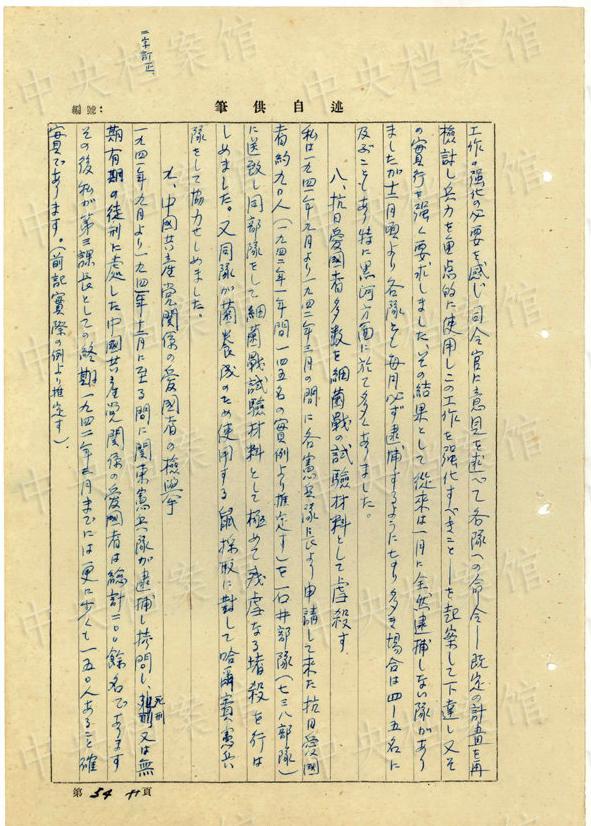 二字訂正
編號：
筆供自述
工作の強化の必要を感じ司令官に意見を述べて各隊への命令―既定の計畫を再
檢討し兵力を重点的に使用しこの工作を強化すべきこと―を起案して下達し又そ
の実行を強く要求しました。その結果として從來は一月に全然逮捕しない隊があり
ましたが十二月頃より各隊とも毎月必ず逮捕するようになり多き場合は四―五名に
及ぶこともあり特に黒河方面に於て多くありました。
八、抗日愛國者多数を細菌戰の試驗材料として虐殺す。
私は一九四一年九月より一九四二年三月の間に各憲兵隊長より申請して来た抗日愛國
者約九〇人（一九四二年一年間一四五名の實例より推定す）を石井部隊（七三八部隊）
に送致し同部隊をして細菌戰試驗材料として極めて残虐なる堵殺を行は
しめました。又同隊が菌養成のため使用する鼠採取に對して哈爾賓憲兵
隊をして協力せしめました。
九、中國共産党関係の愛國者の檢舉
一九四一年九月より一九四一年十二月に至る間に関東憲兵隊が逮捕し拷問し、死刑又は無
期有期の徒刑に處した中國共産党関係の愛國者は總計二〇〇餘名であります
その後私が第三課長としての終期一九四二年 月までには更に少くも一五〇人あること確
實であります。（前記實際の例より推定す）.
第 54 頁
中央档案馆